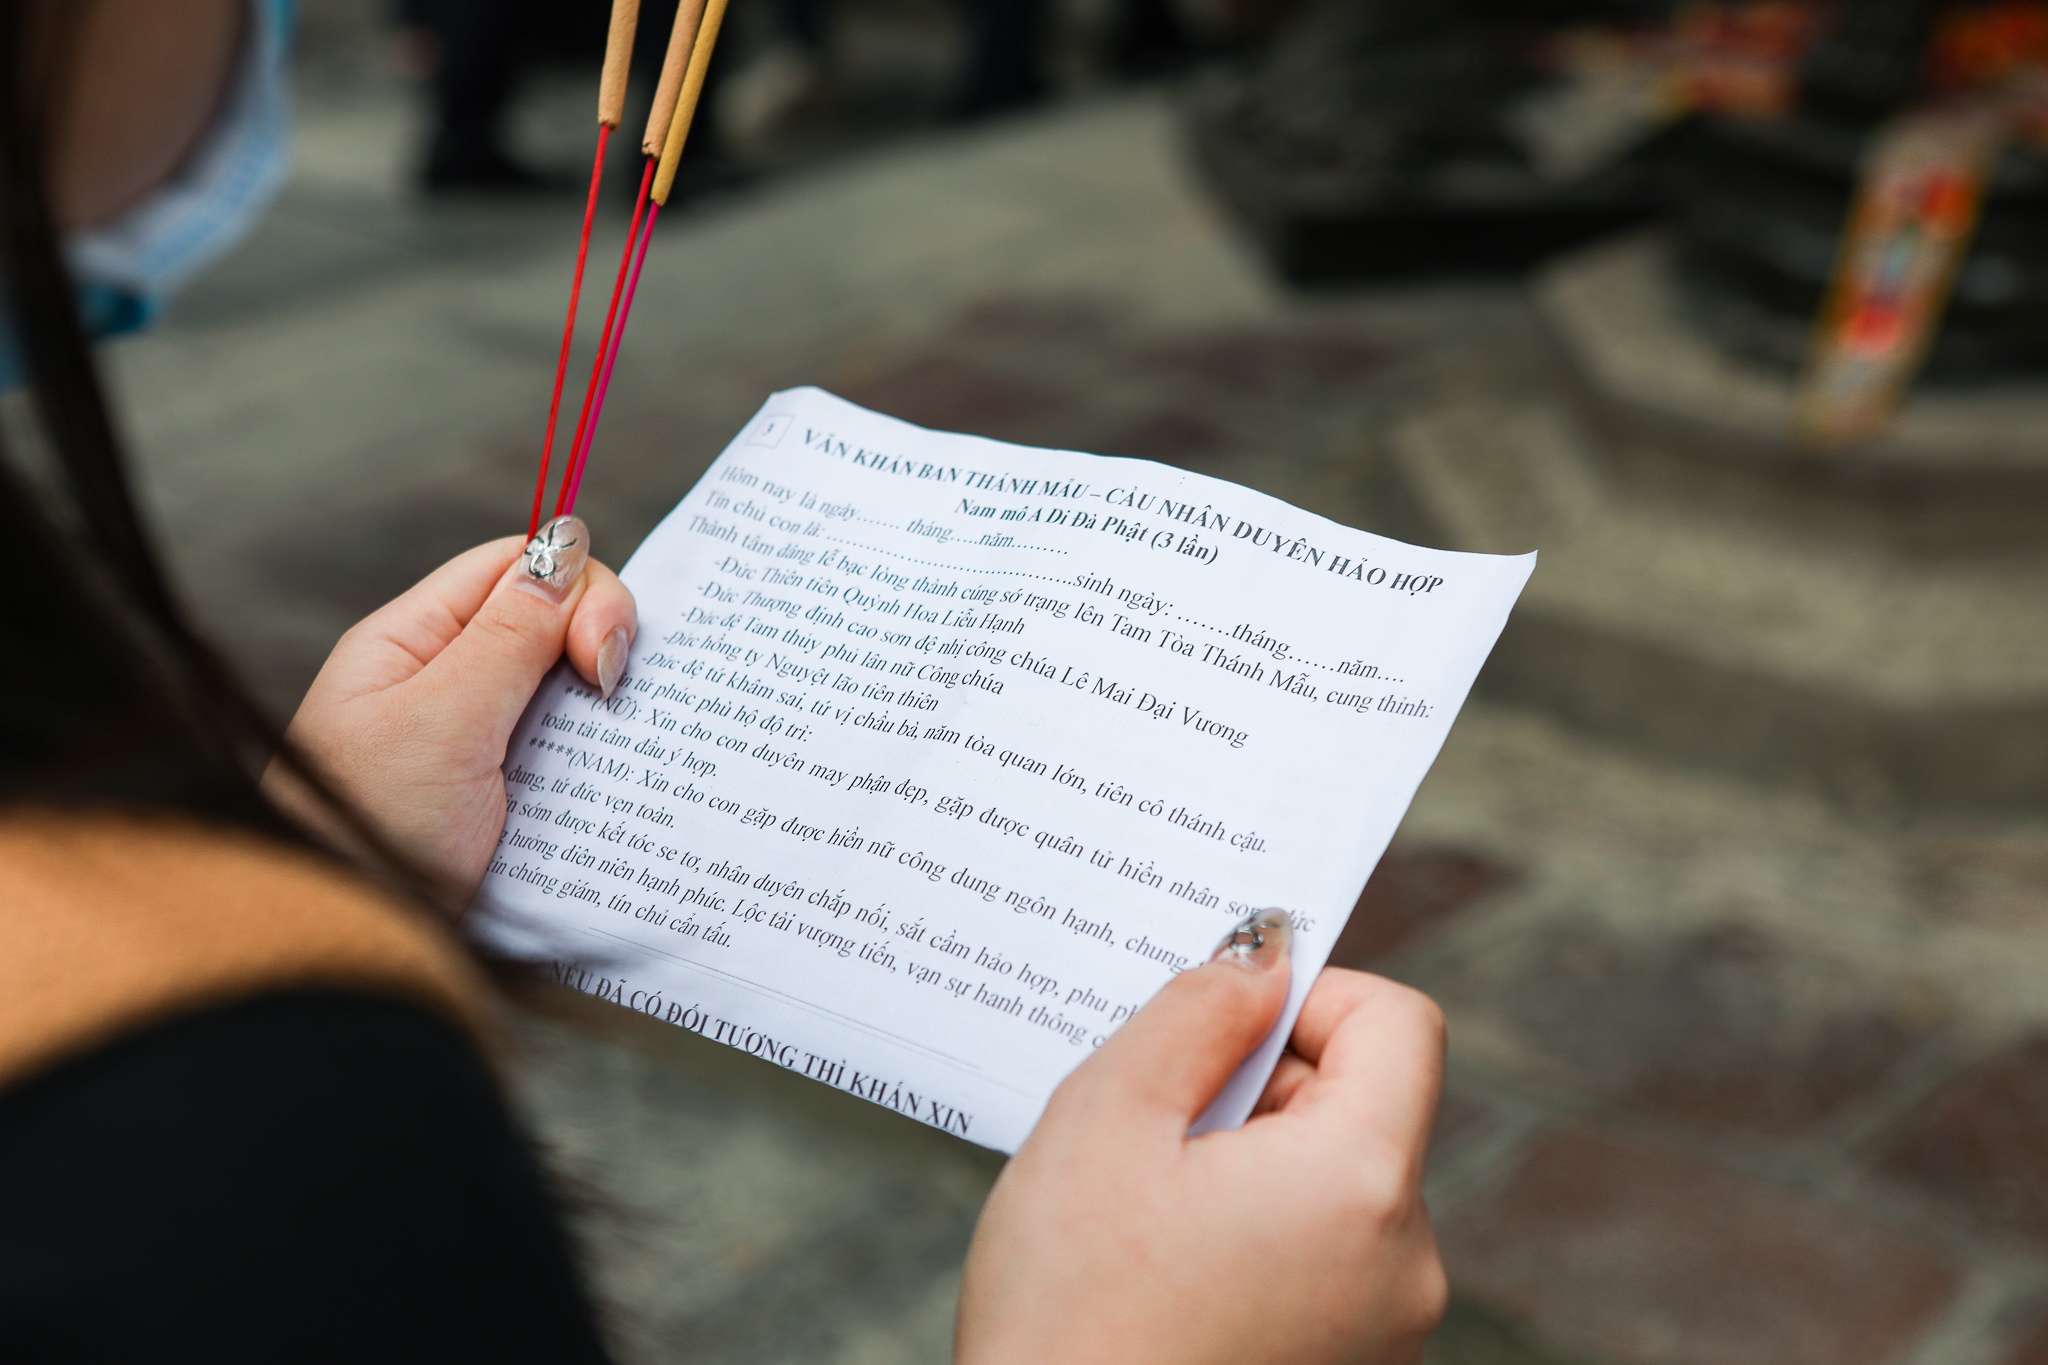 3
VĂN KHẤN BAN THÁNH MẪU – CẦU NHÂN DUYÊN HẢO HỢP
Nam mô A Di Đà Phật (3 lần)
Hôm nay là ngày....... tháng.....năm.........
Tín chủ con là: .......................................sinh ngày: .......tháng......năm....
Thành tâm dâng lễ bạc lòng thành cúng sớ trạng lên Tam Tòa Thánh Mẫu, cung thỉnh:
-Đức Thiên tiên Quỳnh Hoa Liễu Hạnh
-Đức Thượng định cao sơn đệ nhị công chúa Lê Mai Đại Vương
-Đức đệ Tam thủy phủ lân nữ Công chúa
-Đức hồng ty Nguyệt lão tiên thiên
-Đức đệ tứ khâm sai, tứ vị chầu bà, năm tòa quan lớn, tiên cô thánh cậu.
tử phúc phù hộ độ trì:
***(NỮ): Xin cho con duyên may phận đẹp, gặp được quân tử hiền nhân son đức
toàn tài tâm đầu ý hợp.
*****(NAM): Xin cho con gặp được hiền nữ công dung ngôn hạnh, chung
dung, tứ đức vẹn toàn.
sớm được kết tóc se tơ, nhân duyên chắp nối, sắt cầm hảo hợp, phu
hưởng diên niên hạnh phúc. Lộc tài vượng tiến, vạn sự hanh thông
chứng giám, tín chủ cẩn tấu.
NẾU ĐÃ CÓ ĐỐI TƯỢNG THÌ KHẤN XIN